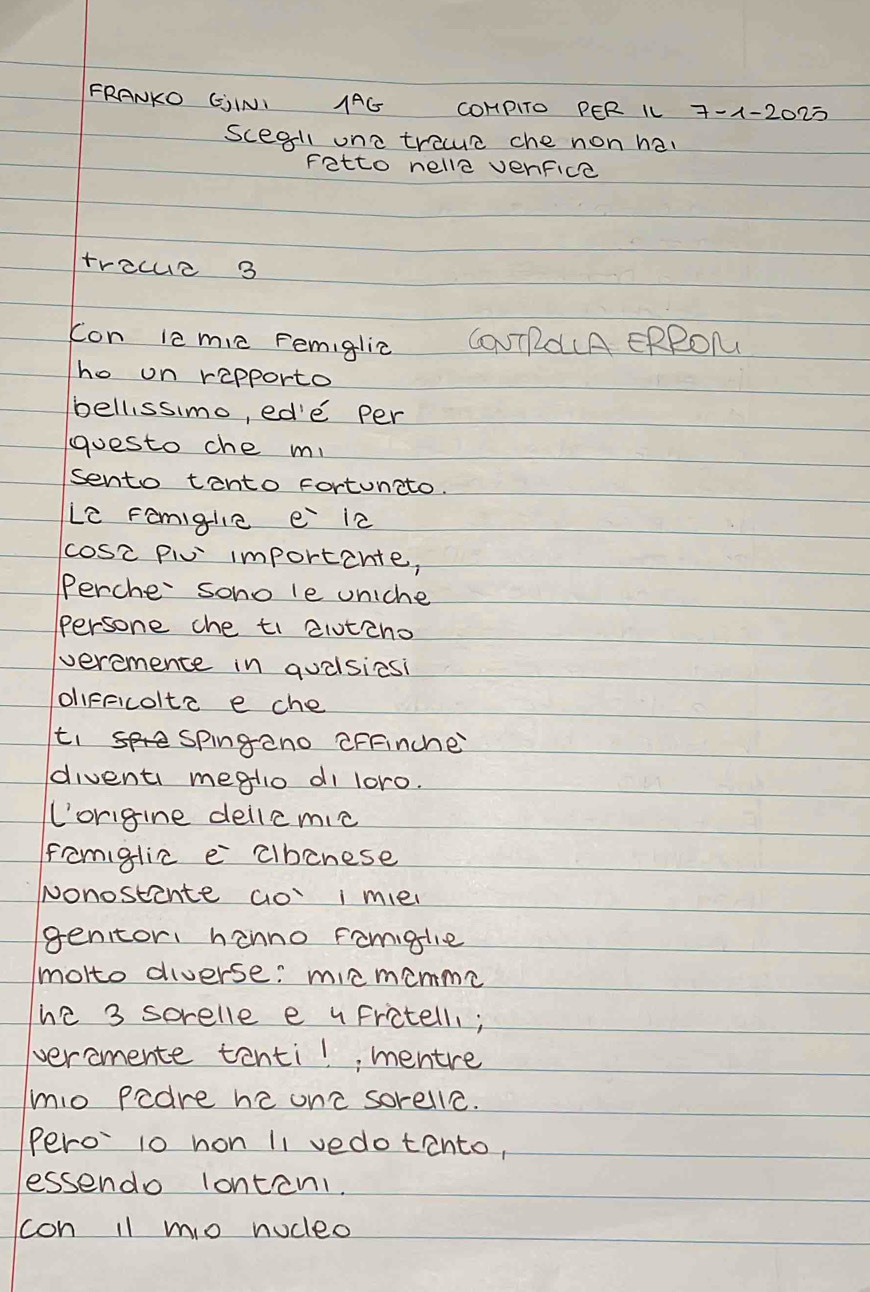 FRANKO GJINI 1AG COMPITO PER IL 7-1-2025
Scegli una traccia che non hai
fatto nella verifica
traccia 3
Con la mia famiglia CONTROLLA ERRORI
ho un rapporto
bellissimo, ed'é per
questo che mi
sento tanto fortunato.
La famiglia e' la
cosa più importante,
Perche' sono le uniche
persone che ti aiutano
veramente in qualsiasi
difficolta e che
ti spingano affinche'
diventi meglio di loro.
L'origine della mia
famiglia è albanese
Nonostante ciò i miei
genitori hanno famiglie
molto diverse: mia mamma
ha 3 sorelle e 4 fratelli;
veramente tanti!; mentre
mio padre ha una sorella.
Però io non li vedo tanto,
essendo lontani.
con il mio nucleo